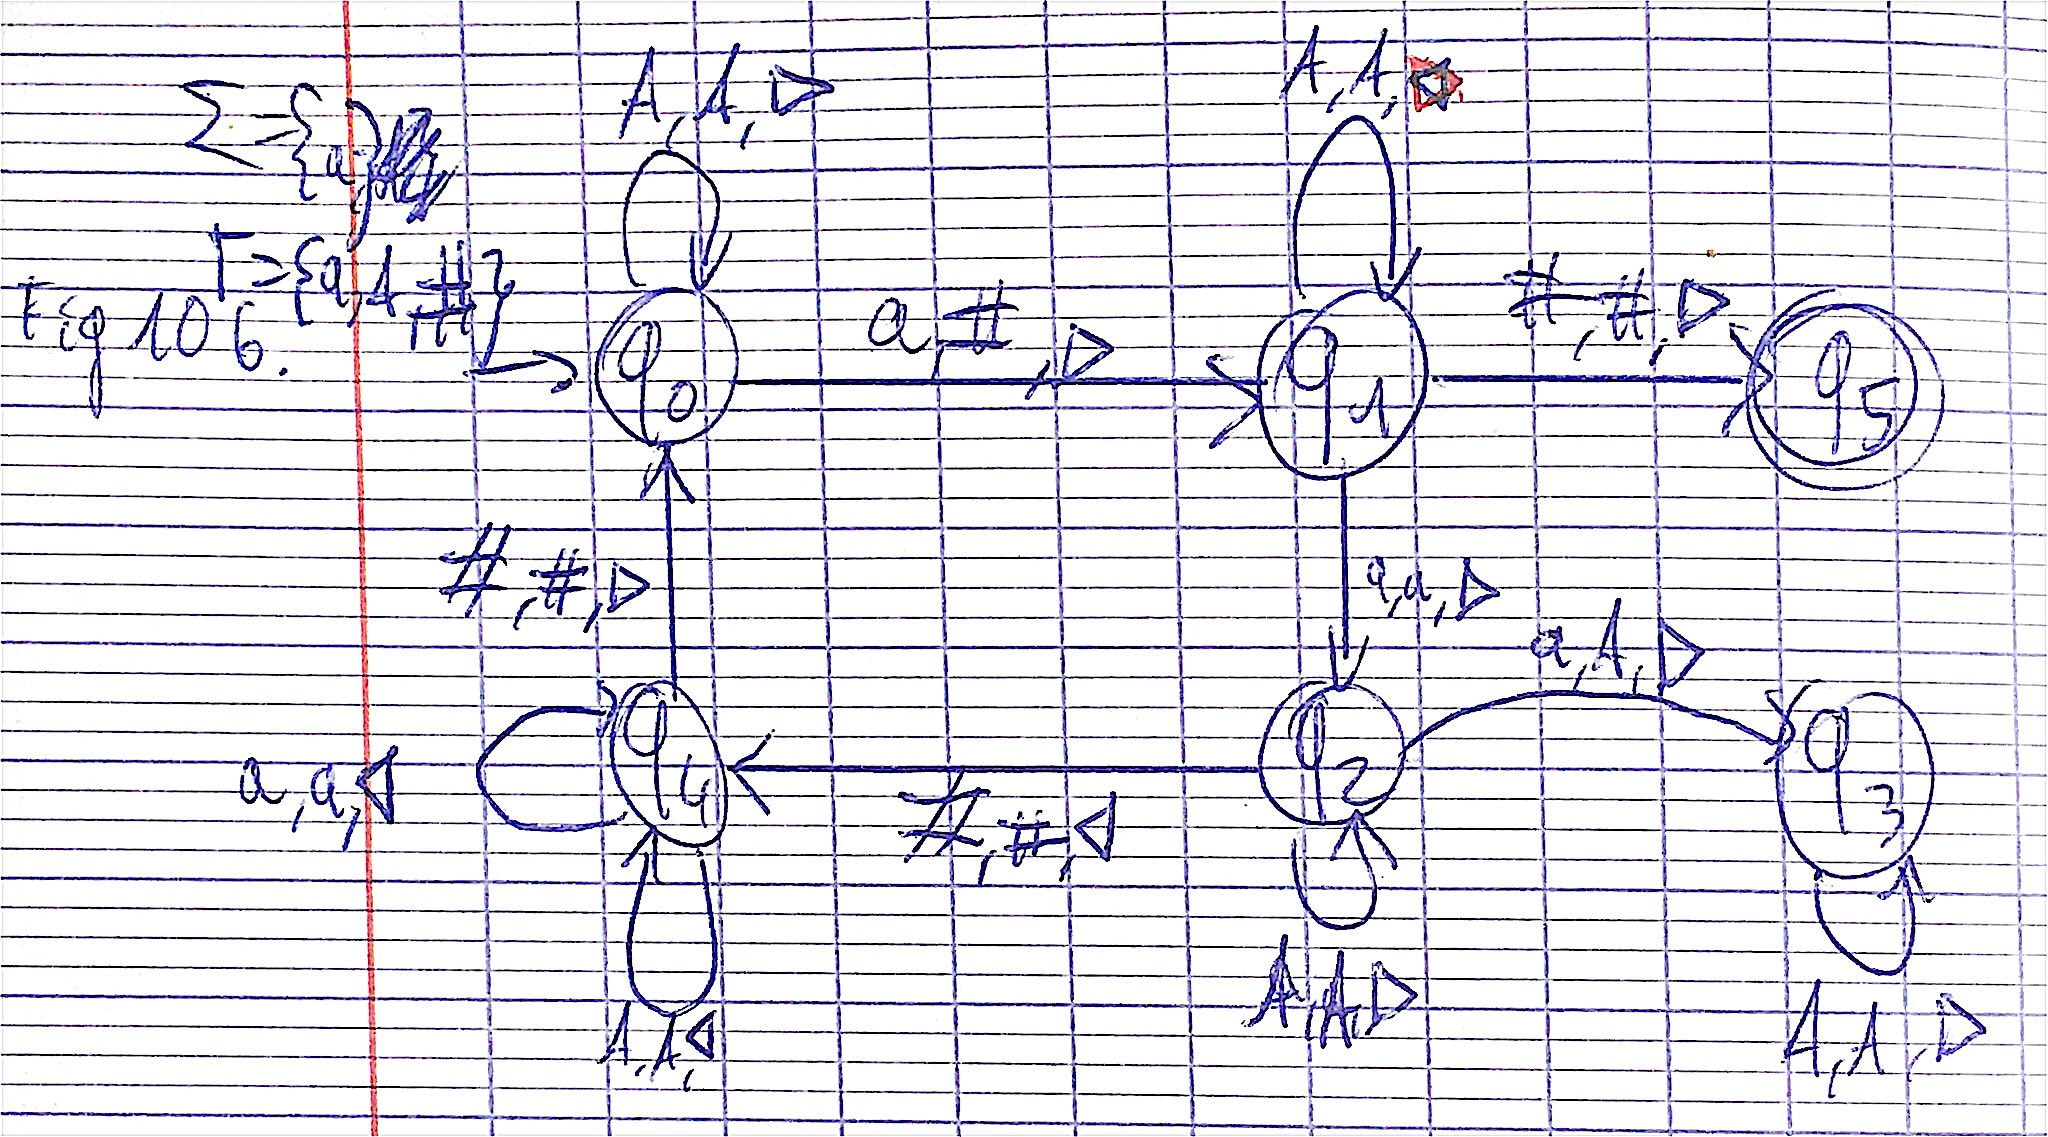 Σ={a}
Γ={a,A,#}
Fig 106.
A,A,▷
A,A,
q0
a,#,▷
q1
#,#,▷
q5
#,#,▷
a,a,▷
a,A,▷
a,a,◁
q4
#,#,◁
q2
q3
A,A,◁
A,A,▷
A,A,▷